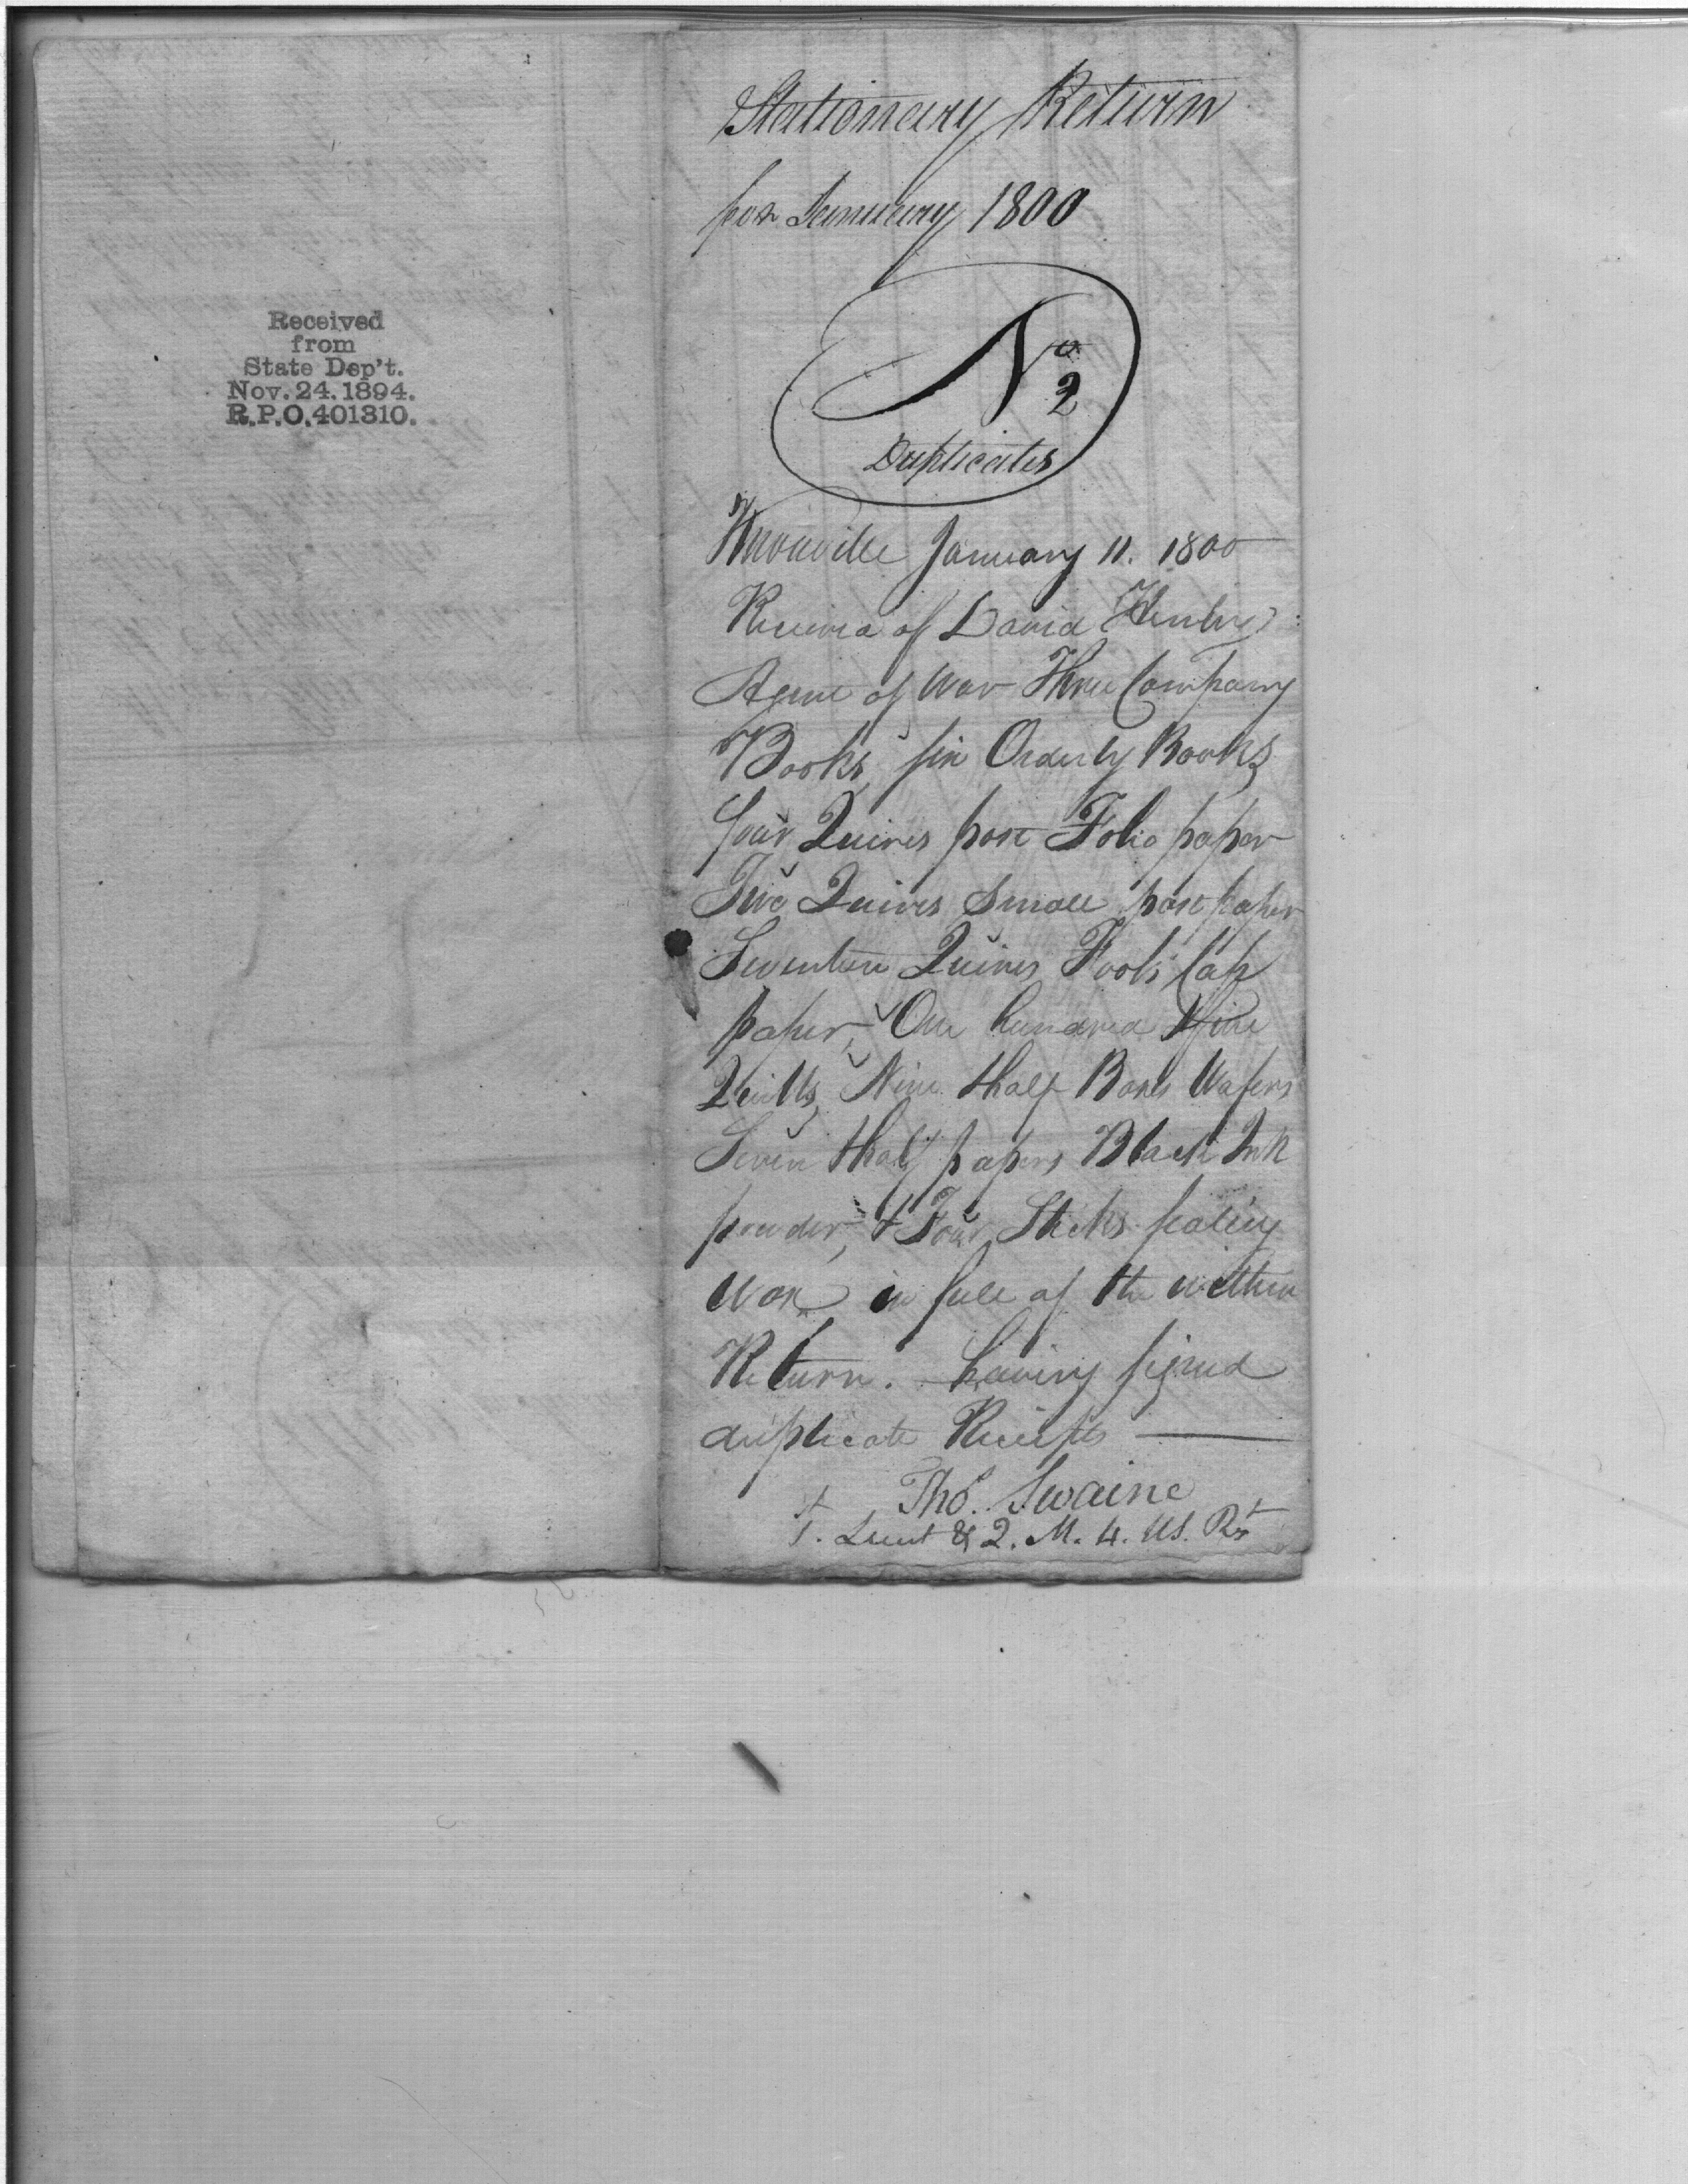 Received
from
State Dep't.
Nov. 24. 1894.
R.P.O. 401310.
Stationary Return
for January 1800
No 2
Duplicates
Knoxville January 11. 1800
Received of David Henley
Agent of War Three Company
Books, six Orderly Books
four Quires post Folio paper
Two Quires small post paper
Seventeen Quires Fools Cap
paper, One hundred Nine
Quills, Nine half Boxes Wafers
Seven half papers Black Ink
powder, & Four Sticks sealing
Wax in full of the within
Return. having signed
duplicate Receipts
Tho. Swaine
1. Lieut & Q. M. 4. US. Rt